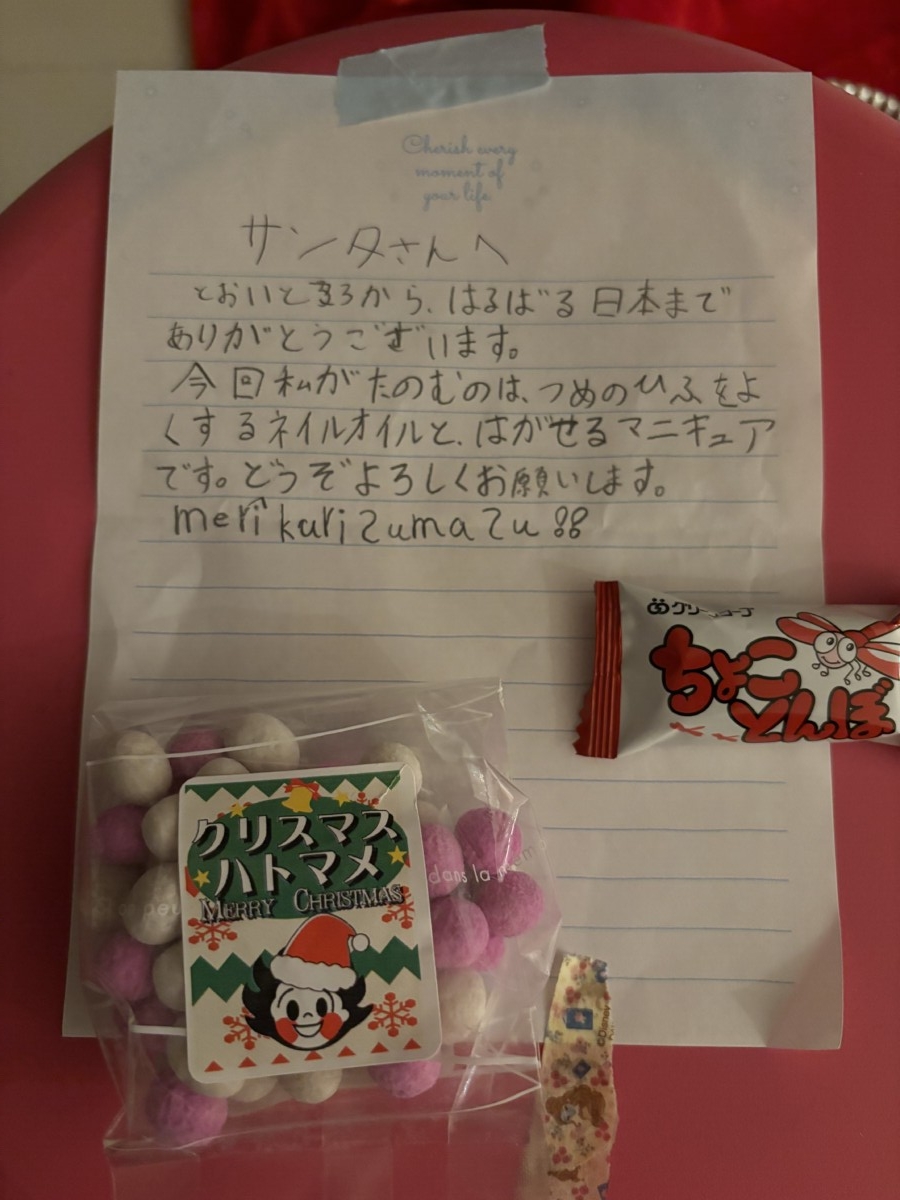 Cherish every
moment of
your life
サンタさんへ
とおいところから、はるばる日本まで
ありがとうございます。
今回私がたのむのは、つめのひふをよ
くするネイルオイルと、はがせるマニキュア
です。どうぞよろしくお願いします。
meri kurizumazu
ちょこ
とんぼ
クリスマス
ハトマメ
MERRY CHRISTMAS
dans la
©Disney